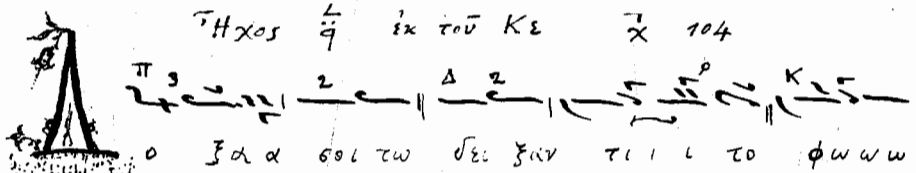 Ἦχος ἐκ τοῦ Κε χ 104
Π 3 2 Δ 2 Κ
Δο ξα α σοι τω δει ξαν τι ι ι το φω ω ω